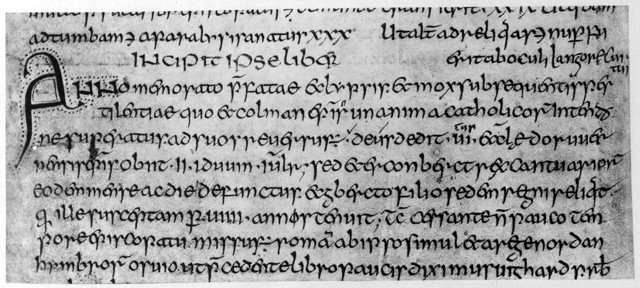 ad tumbam ⁊ aparalysi sanatur xxx
INCIPIT IPSE LIBER
ANNO memorato p̄fatae eclypsis & mox subsequentis pes
tilentiae quo & colman ep̄s unanima catholicor intentio
ne superatus ad suos reuersus ÷ deusdedit ui eclae doruuer
nensis ep̄s obiit ii iduum iuliar sed & erconberct rex cantuarior
eodem mense ac die defunctus ecgbercto filio sedem regni reliqt
q̄ ille susceptam per uiiii annos tenuit tc̄ cessante n̄ pauco tem
pore episcopatu missus ÷ roma ab ipso simul & a rege nordan
hymbror osuio ut p̄cedente libro paucis diximus uighard prb